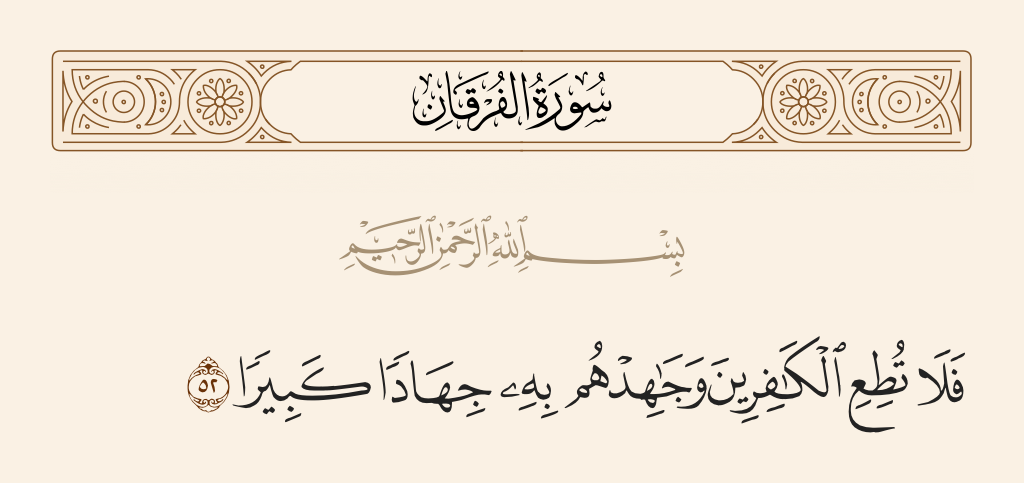 سُورَةُ الفُرْقَانِ
بِسْمِ ٱللَّهِ ٱلرَّحْمَٰنِ ٱلرَّحِيمِ
فَلَا تُطِعِ ٱلْكَـٰفِرِينَ وَجَـٰهِدْهُم بِهِۦ جِهَادًا كَبِيرًا ٥٢